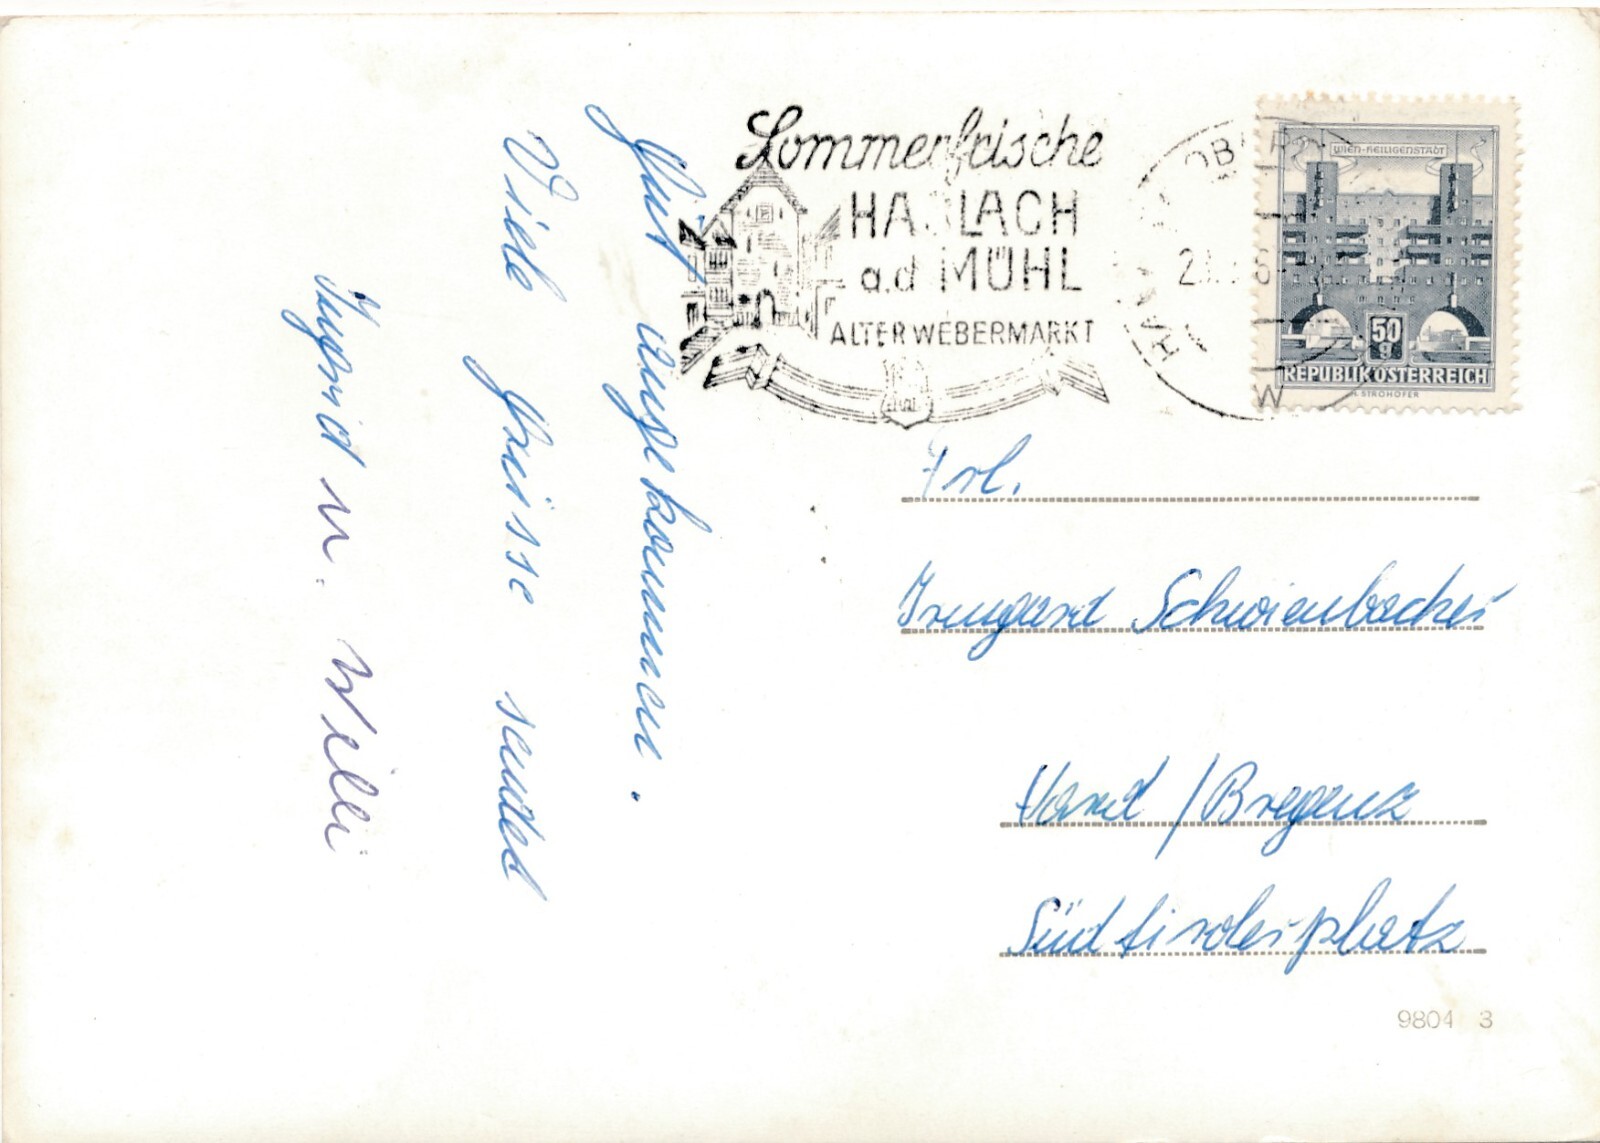 Gut angekommen.
Viele Grüsse sendet
Ingrid u. Welli
Sommerfrische
HASLACH
a.d MÜHL
ALTER WEBERMARKT
WIEN-HEILIGENSTADT
50
g
REPUBLIK ÖSTERREICH
H. STROHOFER
Frl.
Irmgard Schwienbacher
Hard / Bregenz
Südtirolerplatz
9804 3